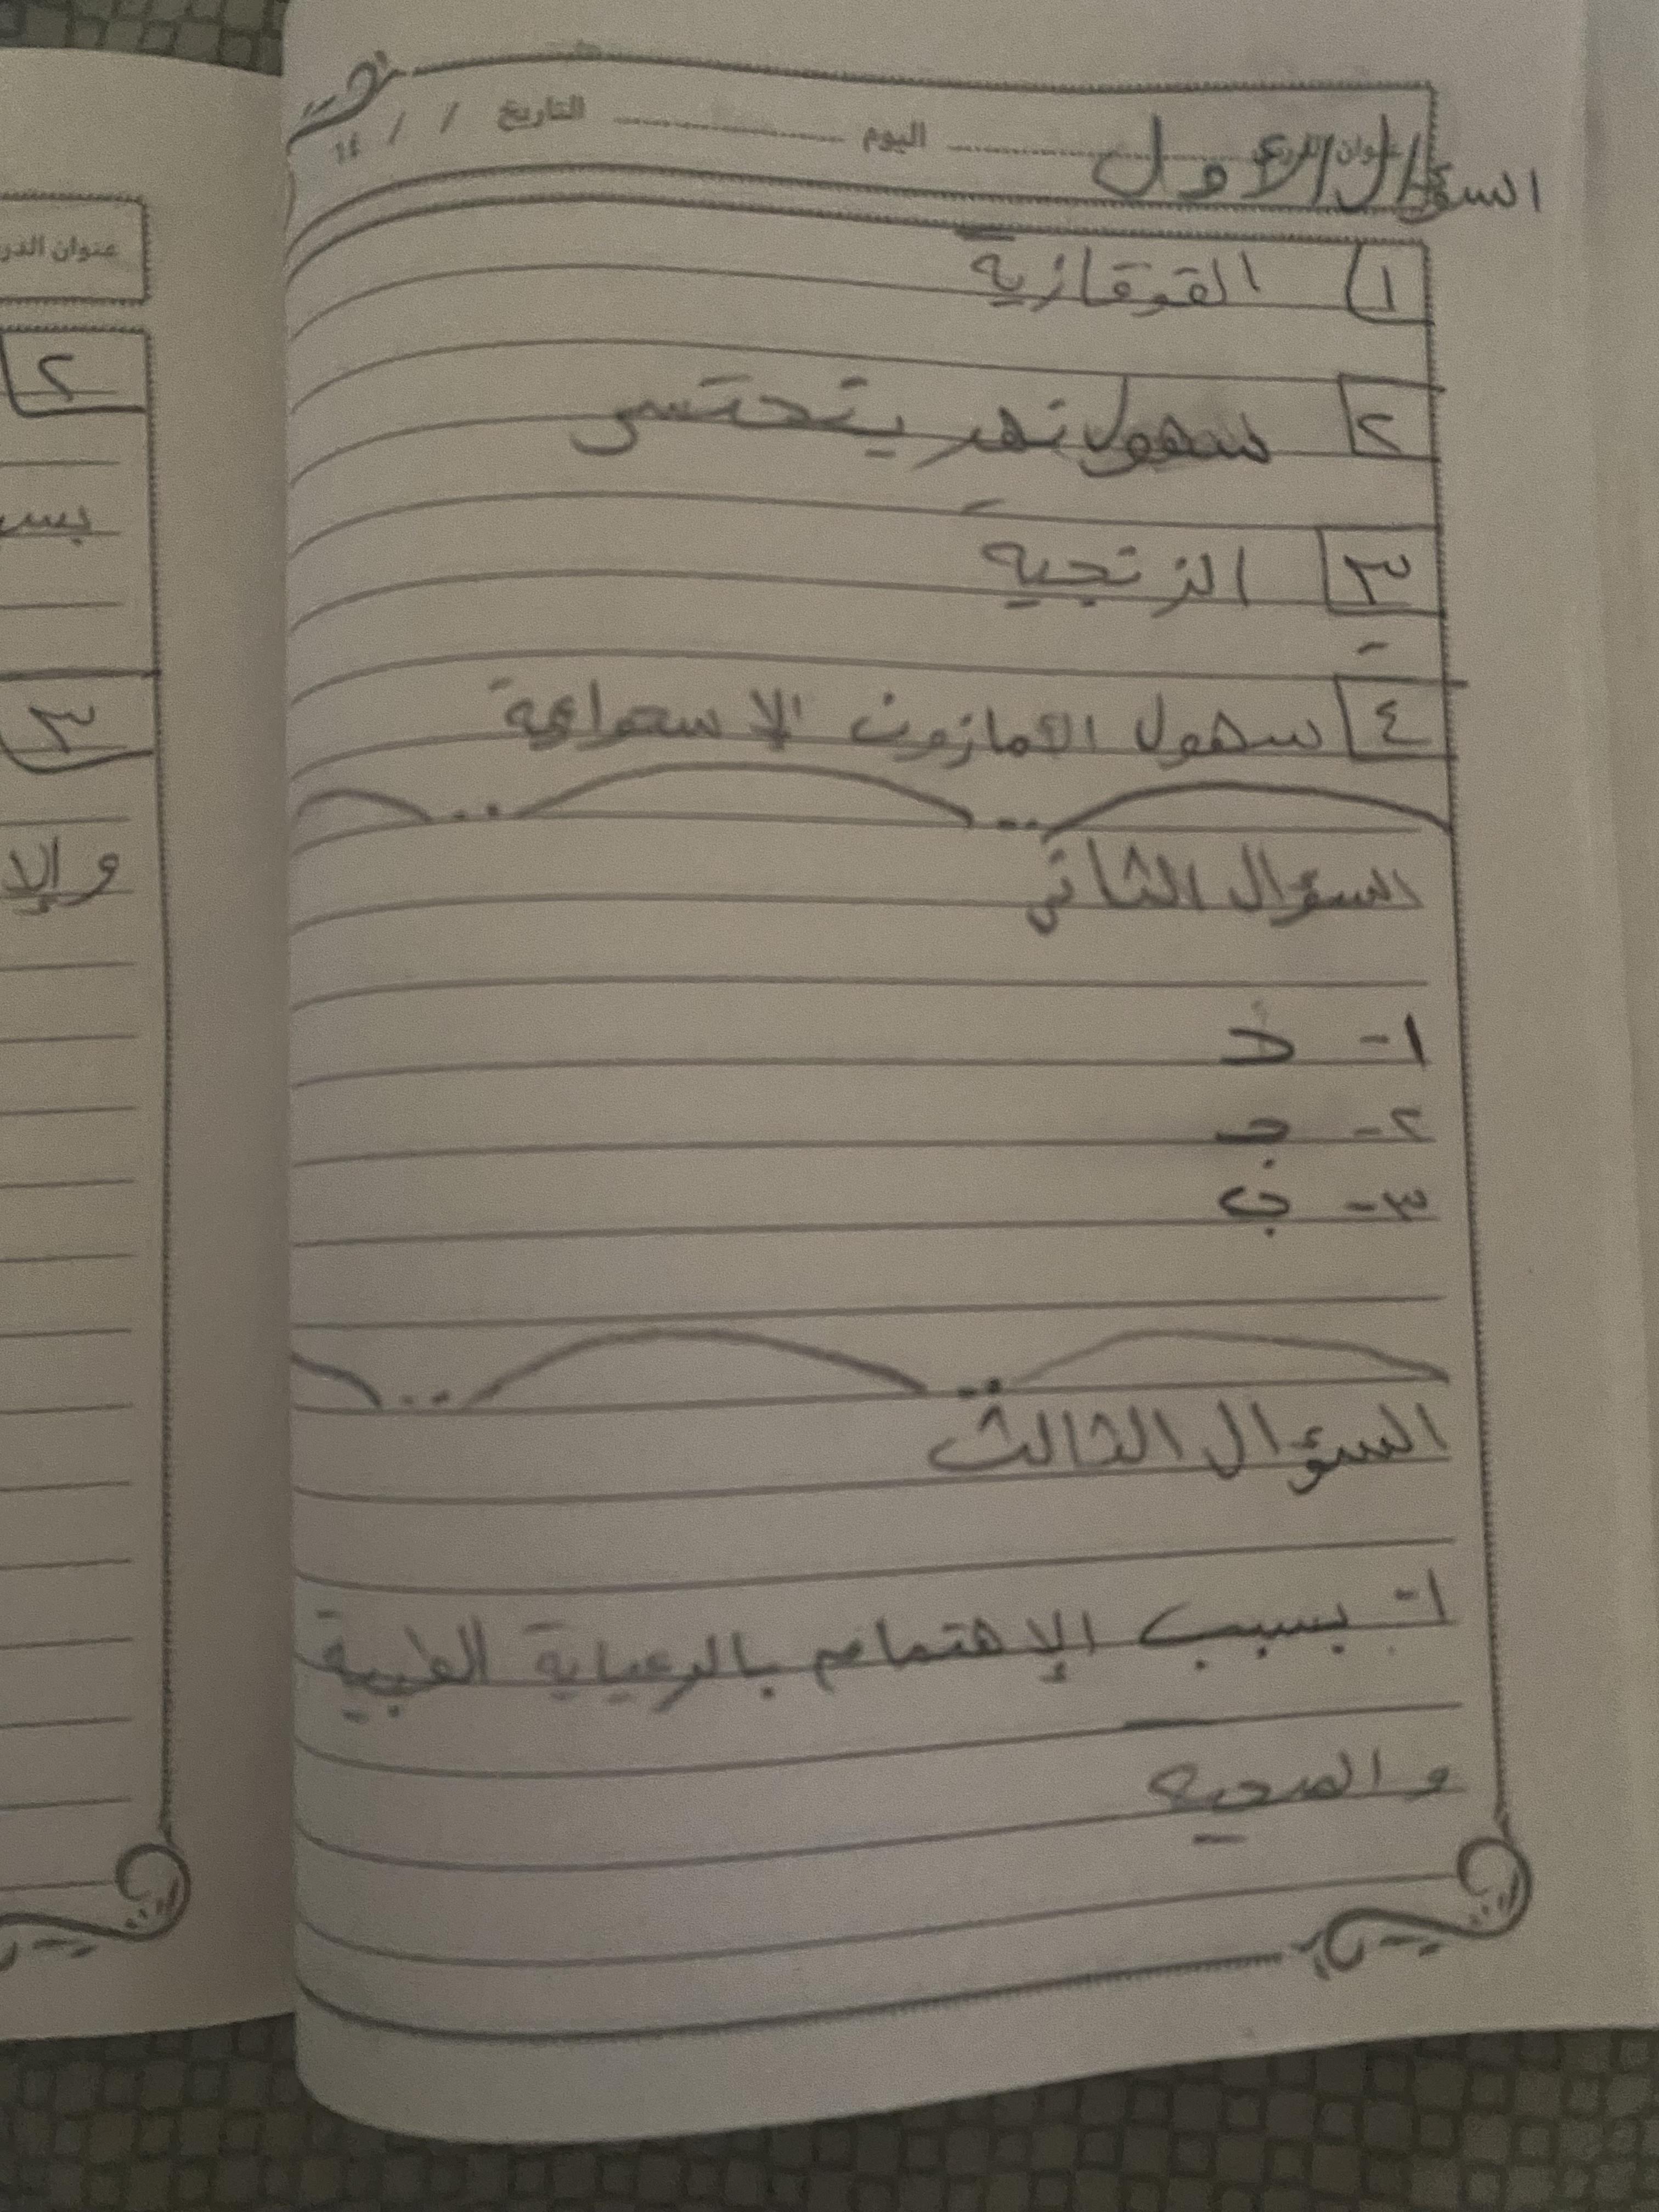 عنوان الدرس اليوم التاريخ / / ١٤
السؤال الأول
١ القوقازية
٢ سهول نهر يتحتسي
٣ الزنجية
٤ سهول الأمازون الإستوائية
السؤال الثاني
١- د
٢- ج
٣- ب
السؤال الثالث
١- بسبب الإهتمام بالرعاية الطبية
و الصحية
عنوان الدر
٢
بسب
٣
و الإ